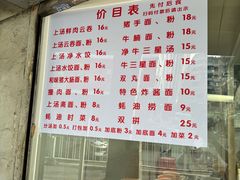 价目表
先付后食
扫码付款后请出示
上汤鲜肉云吞 16元
上汤云吞面、粉 16元
上汤净水饺 16元
上汤水饺面、粉 16元
和味猪大肠面、粉 16元
撸肉面、粉 18元
上汤斋面、粉 8元
蚝油时菜 8元
猪手面、粉 18元
牛腩面、粉 18元
牛三星面、粉 18元
净牛三星汤 15元
双丸面、粉 15元
特色炸酱面 10元
蚝油捞面 9元
双拼 25元
分汤加 0.5元 打包加 0.5元 加底粉 3元 加底面 4元 加菜 2元